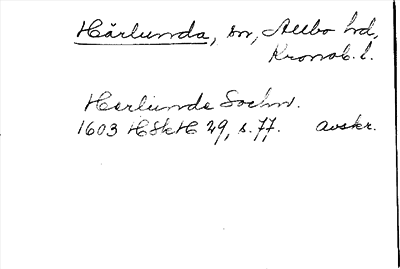 Härlunda, sn, Allbo hd,
Kronob. l.
Herlunde Sochn.
1603 HSkH 29, s. 77. avskr.